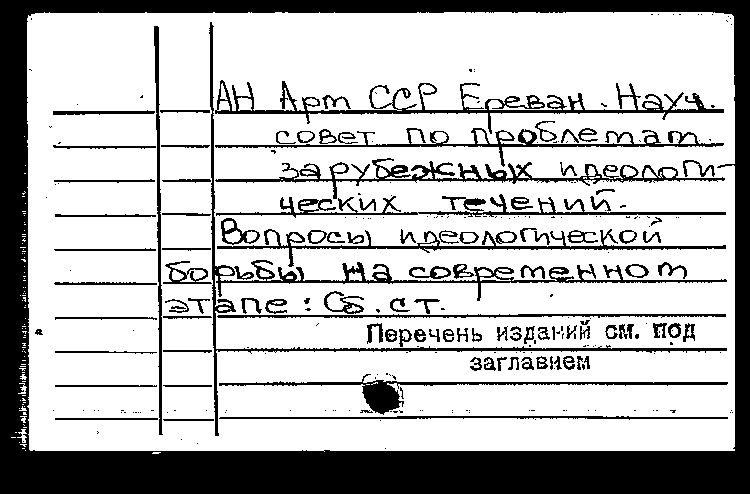 АН Арм ССР Ереван. Науч.
совет по проблемам
зарубежных идеологи-
ческих течений.
Вопросы идеологической
борьбы на современном
этапе : Сб. ст.
Перечень изданий см. под
заглавием